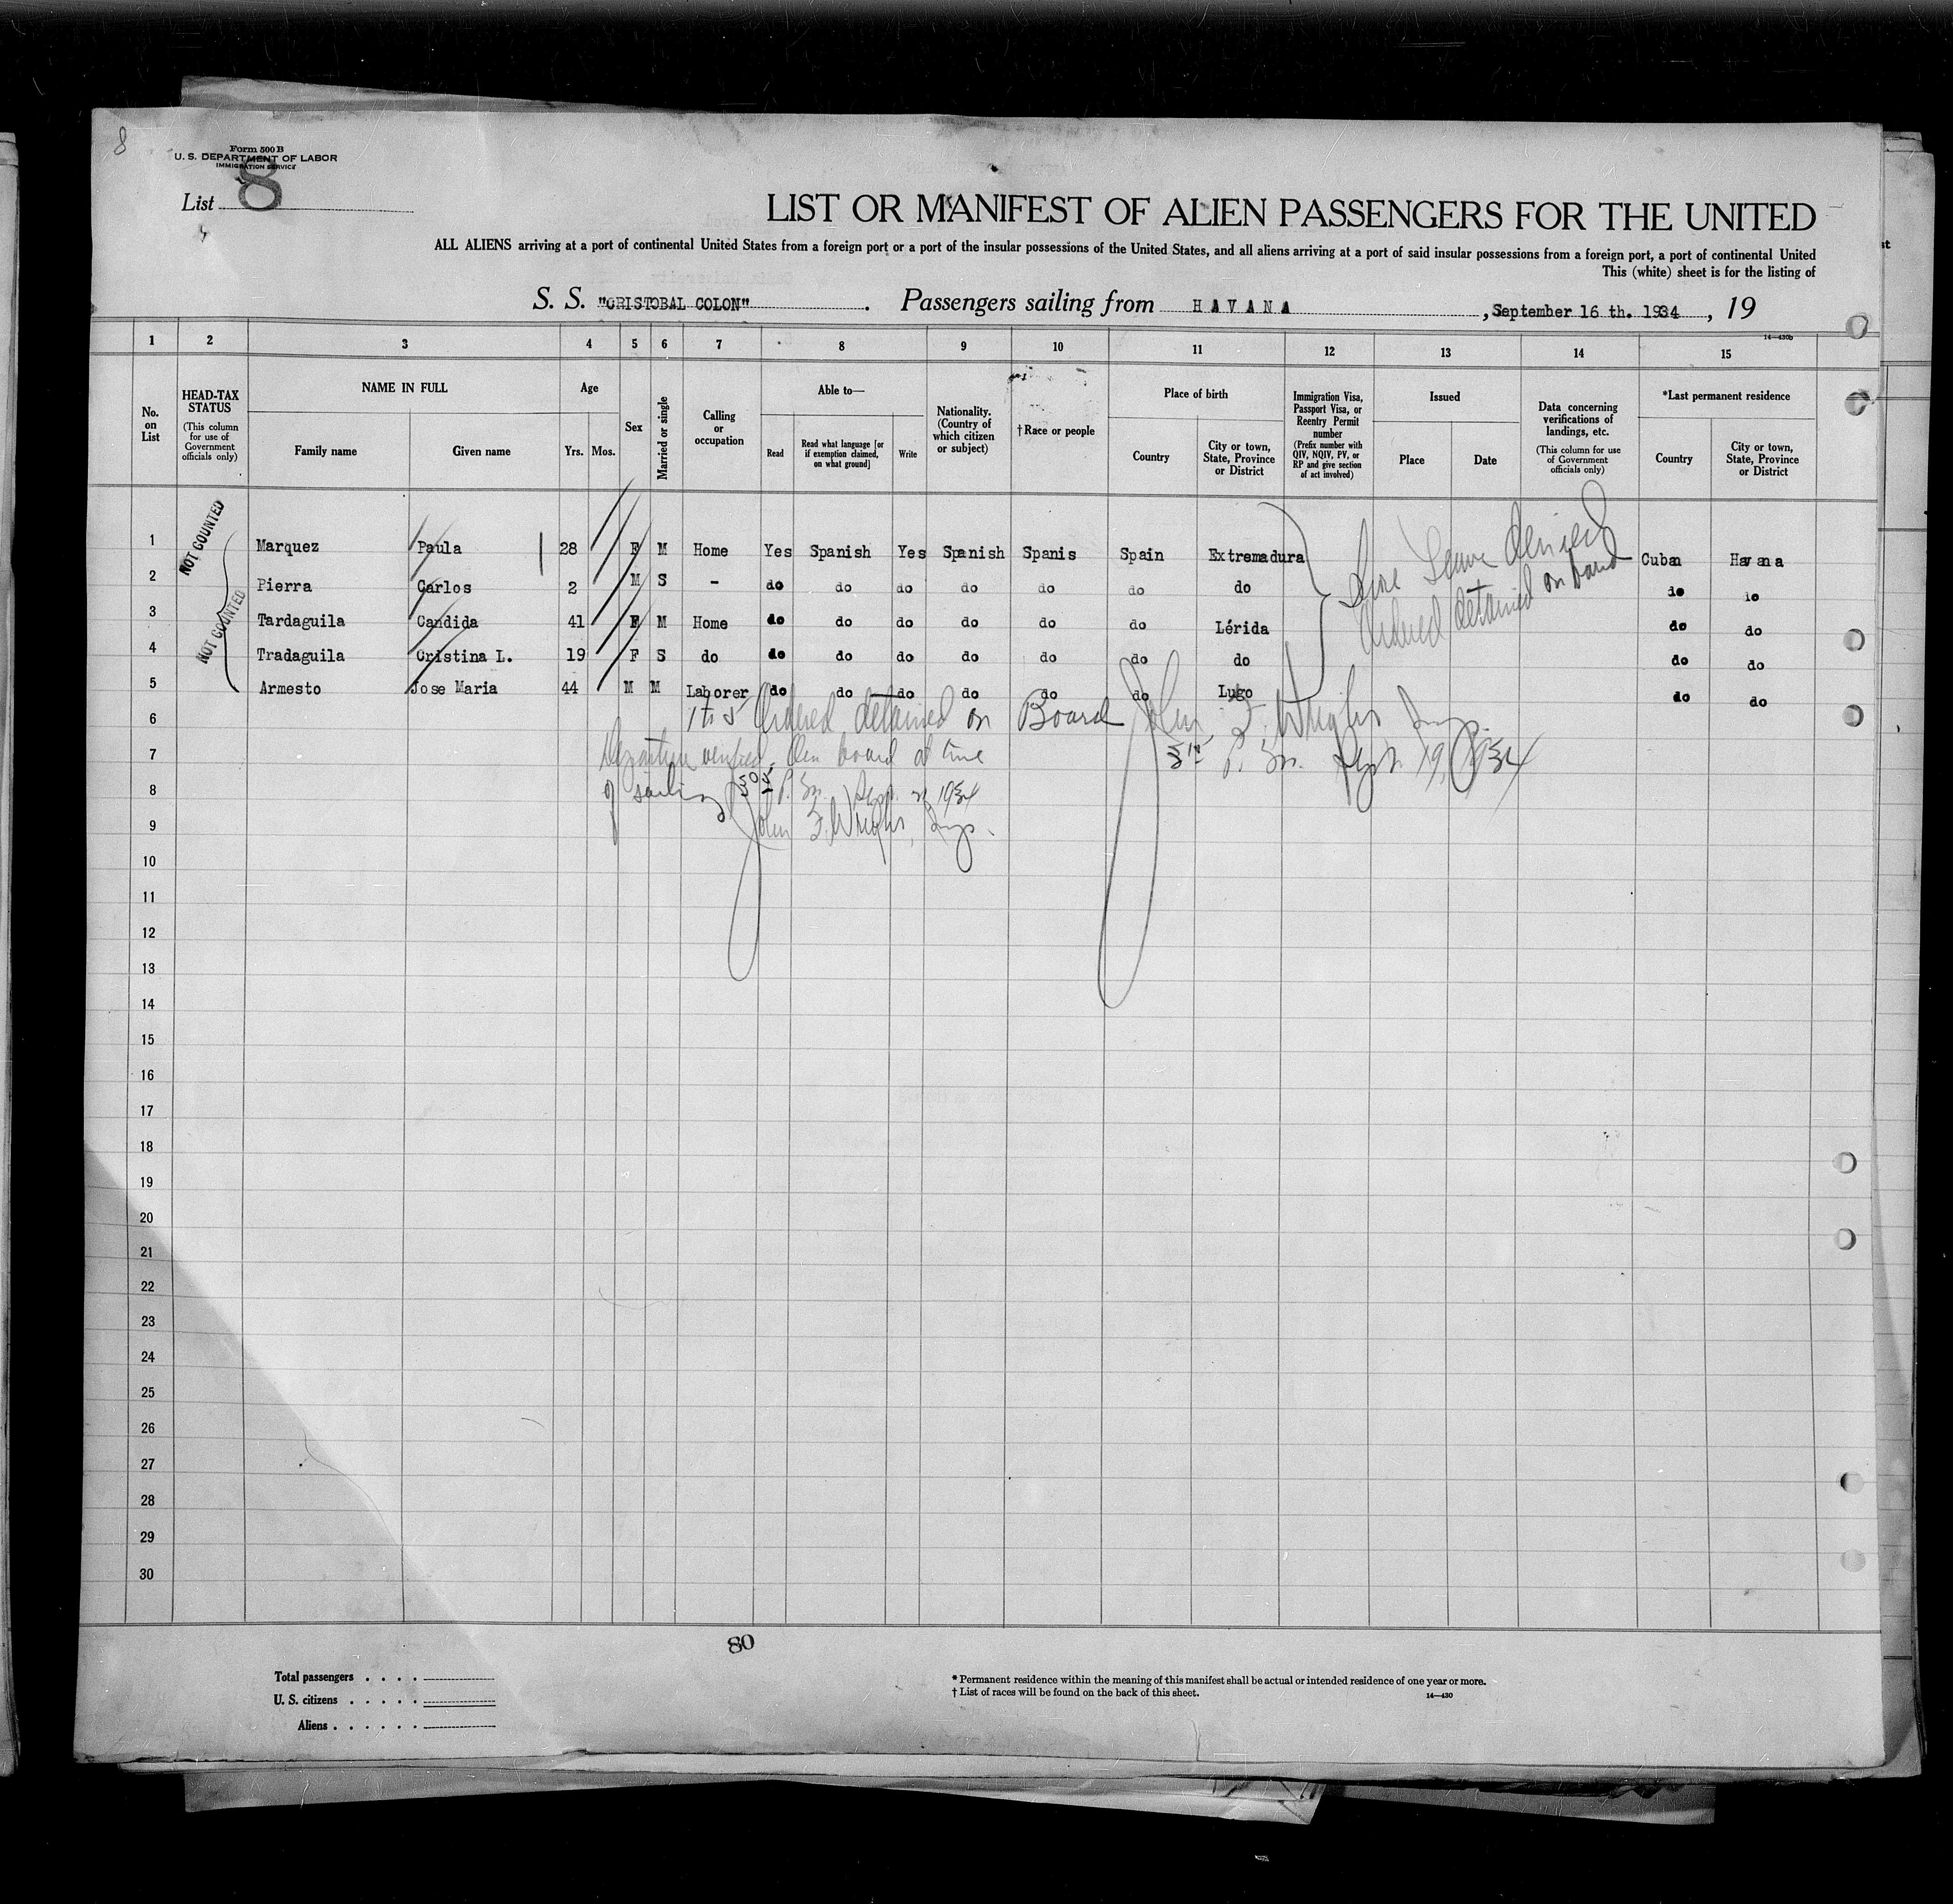 8
Form 500 B
U. S. DEPARTMENT OF LABOR
IMMIGRATION SERVICE
List 8
LIST OR MANIFEST OF ALIEN PASSENGERS FOR THE UNITED
ALL ALIENS arriving at a port of continental United States from a foreign port or a port of the insular possessions of the United States, and all aliens arriving at a port of said insular possessions from a foreign port, a port of continental United
This (white) sheet is for the listing of
S. S. "CRISTOBAL COLON" . Passengers sailing from HAVANA , September 16 th. 1934 , 19
14—430b
1 2 3 4 5 6 7 8 9 10 11 12 13 14 15
No. on List
HEAD-TAX STATUS (This column for use of Government officials only)
NAME IN FULL
Family name Given name
Age
Yrs. Mos.
Sex
Married or single
Calling or occupation
Able to—
Read Read what language [or if exemption claimed, on what ground] Write
Nationality. (Country of which citizen or subject)
†Race or people
Place of birth
Country City or town, State, Province or District
Immigration Visa, Passport Visa, or Reentry Permit number (Prefix number with QIV, NQIV, PV, or RP and give section of act involved)
Issued
Place Date
Data concerning verifications of landings, etc. (This column for use of Government officials only)
*Last permanent residence
Country City or town, State, Province or District
NOT COUNTED
NOT COUNTED
1 Marquez Paula 28 F M Home Yes Spanish Yes Spanish Spanis Spain Extremadura Cuban Havana
2 Pierra Carlos 2 M S - do do do do do do do do do
3 Tardaguila Candida 41 F M Home do do do do do do Lérida do do
4 Tradaguila Cristina L. 19 F S do do do do do do do do do do
5 Armesto Jose Maria 44 M M Laborer do do do do do do Lugo do do
Shore Leave denied
Ordered detained on board
6 1 to 5 Ordered detained on Board John F. Wright Insp.
7 Departure verified. On board at time
5 15 P. M. Sept. 19, 1934
8 of sailing P. M. Sept. 1934
9 John F. Wright, Insp.
10
11
12
13
14
15
16
17
18
19
20
21
22
23
24
25
26
27
28
29
30
80
Total passengers . . . .
U. S. citizens . . . . .
Aliens . . . . . .
* Permanent residence within the meaning of this manifest shall be actual or intended residence of one year or more.
† List of races will be found on the back of this sheet.
14—430